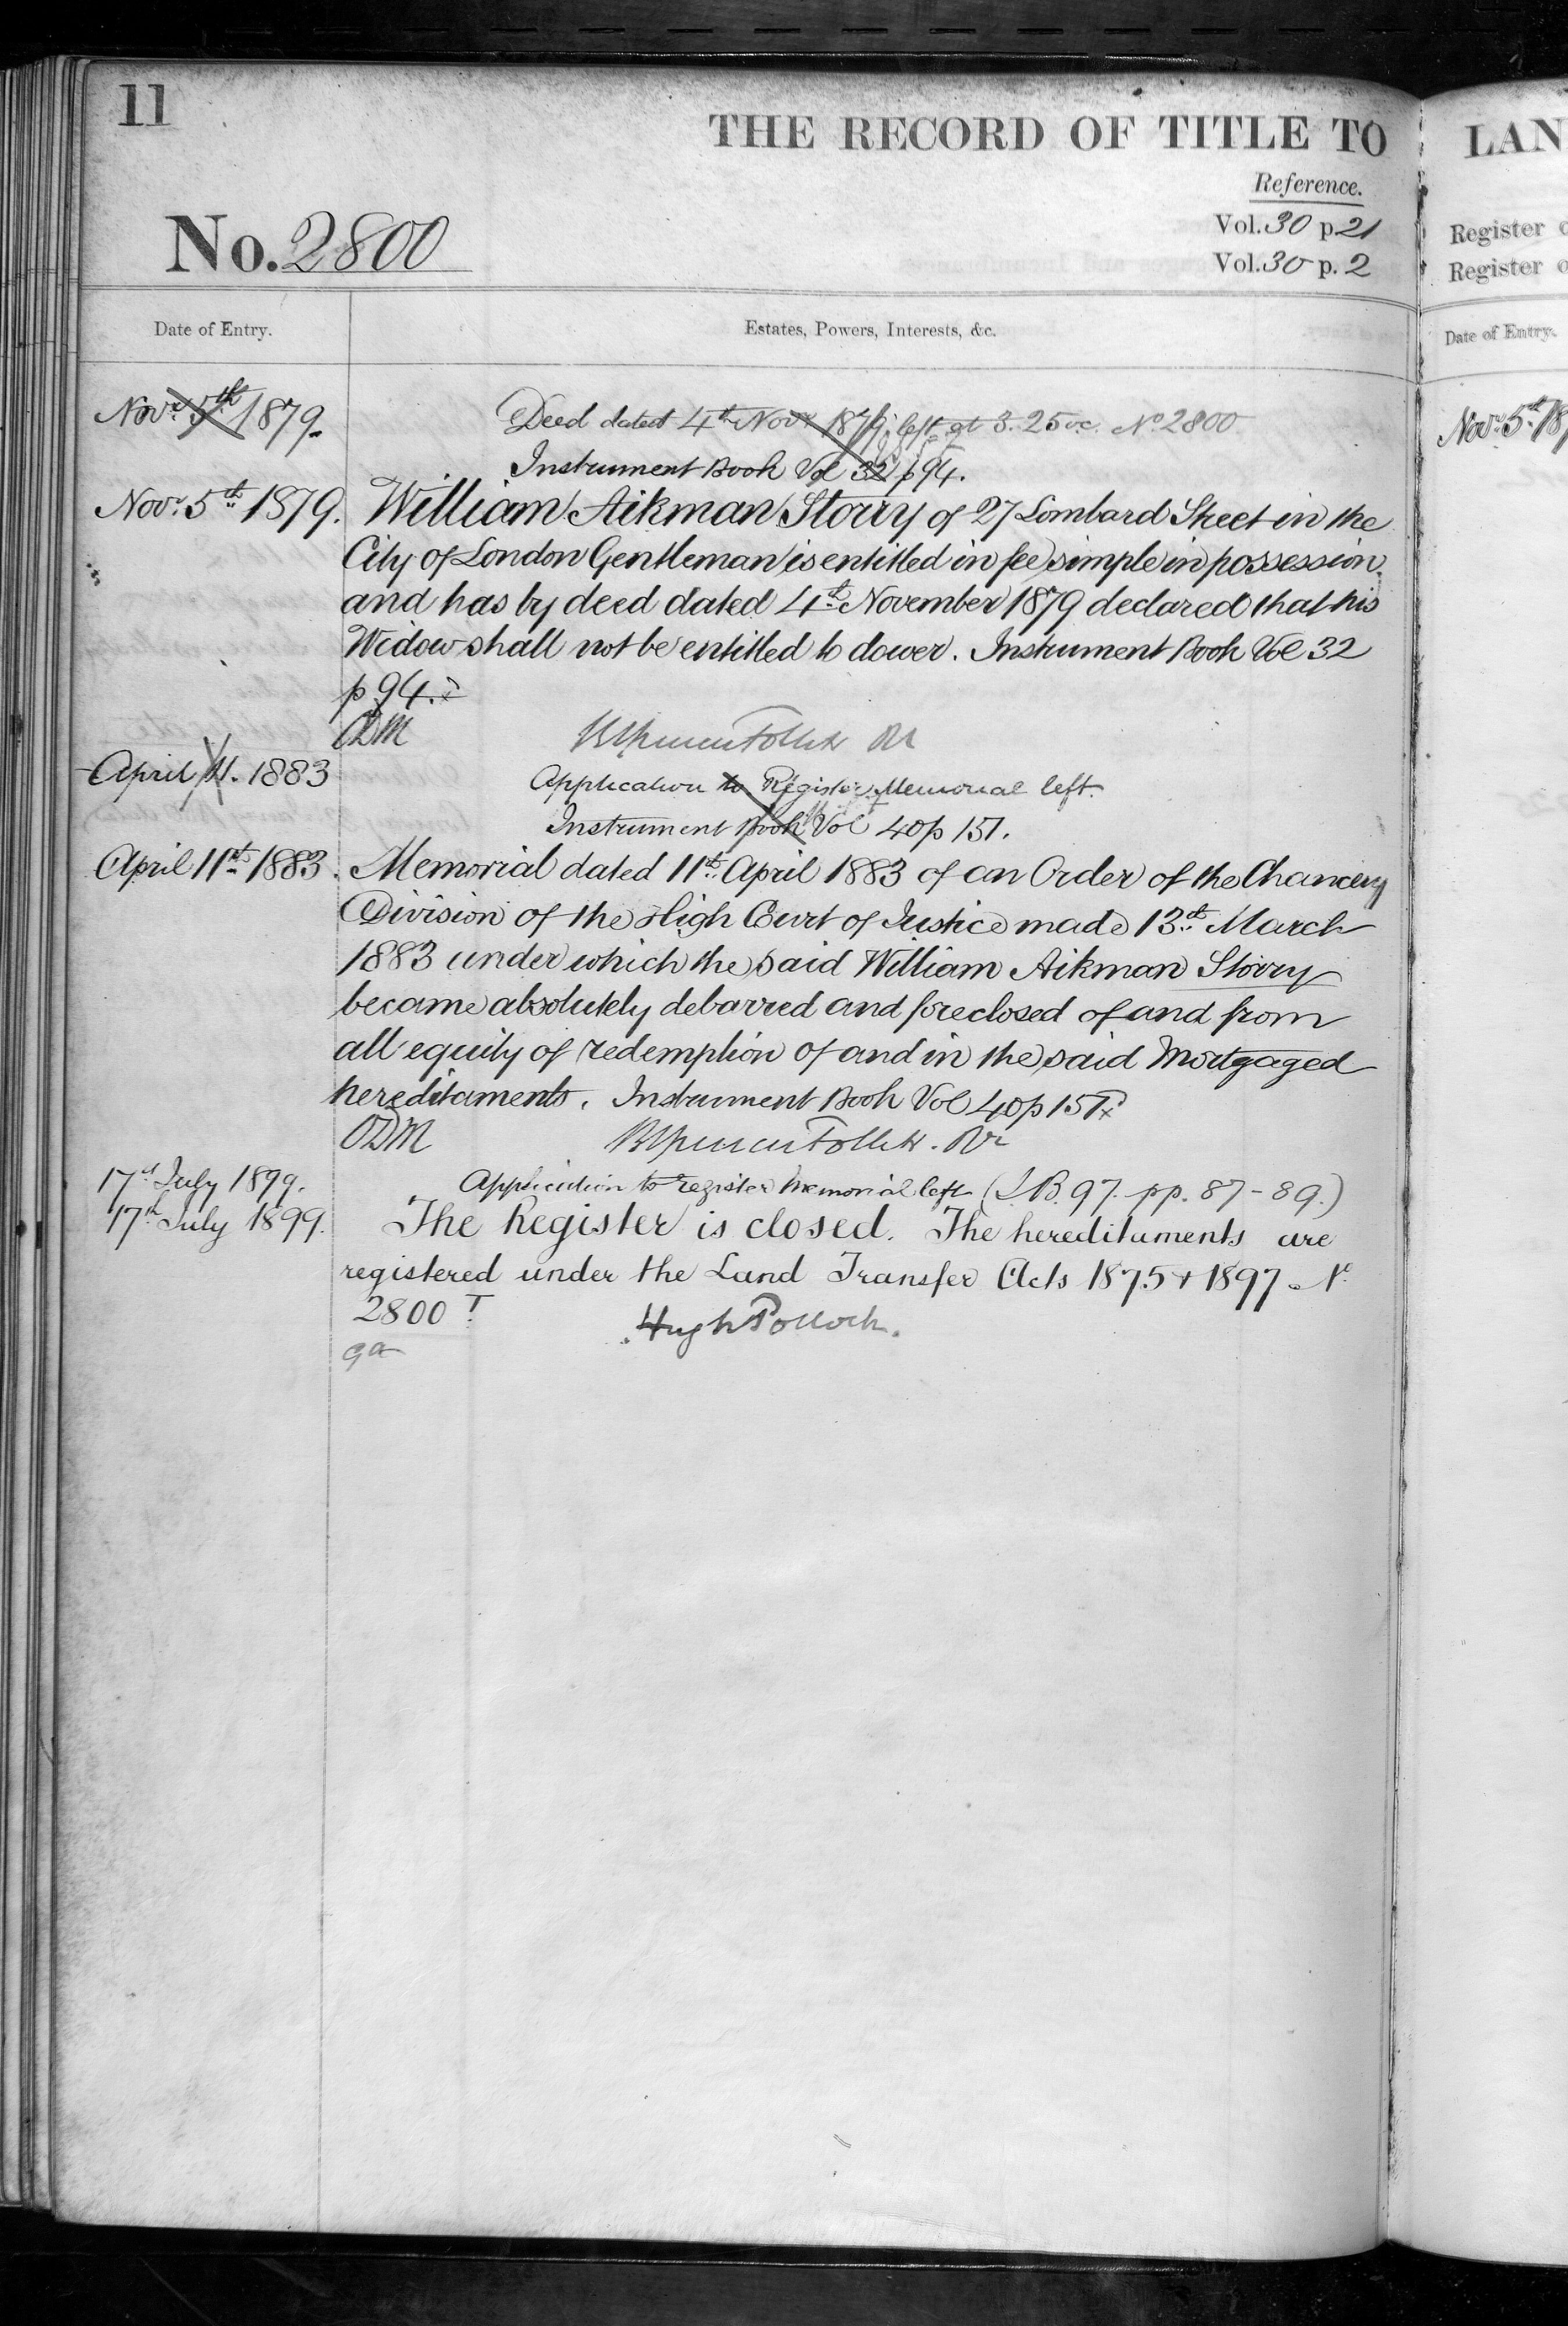 11
THE RECORD OF TITLE TO
LAN
Reference.
Vol. 30 p 21
Vol. 30 p. 2
No. 2800
Register
Register
Date of Entry.
Estates, Powers, Interests, &c.
Date of Entry.
Novr 5th 1879.
Deed dated 4th Novr 1879. left at 3.25 oc. No. 2800
Instrument Book Vol 32 p 94.
Novr. 5th 18
Novr. 5th 1879. William Aikman Storry of 27 Lombard Street in the
City of London Gentleman is entitled in fee simple in possession.
and has by deed dated 4th November 1879 declared that his
Widow shall not be entitled to dower. Instrument Book Vol 32
p 94.
ODM
April 11. 1883
Application to Register Memorial left.
Instrument Book Vol 40 p 151.
April 11th 1883. Memorial dated 11th April 1883 of an Order of the Chancery
Division of the High Court of Justice made 13th March
1883 under which the said William Aikman Storry
became absolutely debarred and foreclosed of and from
all equity of redemption of and in the said Mortgaged
hereditaments. Instrument Book Vol 40 p 151
ODM
17th July 1899. Application to register Memorial left (I.B. 97. pp. 87-89.)
17th July 1899. The Register is closed. The hereditaments are
registered under the Land Transfer Acts 1875 + 1897 No.
2800 T
Hugh Pollock.